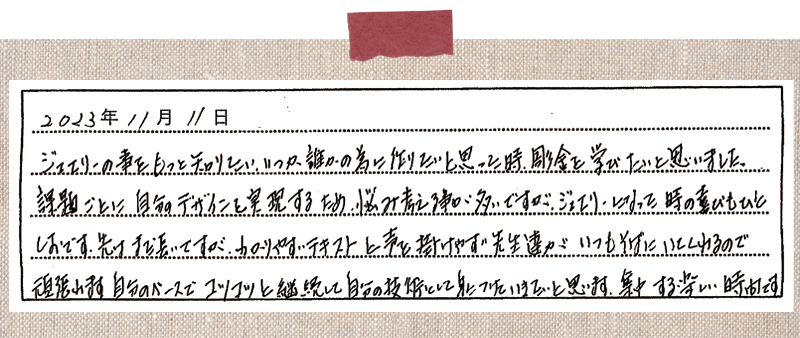 2023年 11月 11日
ジュエリーの事をもっと知りたい、いつか誰かの為に作りたいと思った時、彫金を学びたいと思いました。
課題ごとに自分のデザインを実現するため、悩み考える事が多いですが、ジュエリーになった時の喜びもひと
しおです。先はまだ長いですが、わかりやすいテキストと声を掛けやすい先生達がいつもそばにいてくれるので
頑張れます 自分のペースでコツコツと継続して自分の技術として身につけていきたいと思います。集中する楽しい時間です